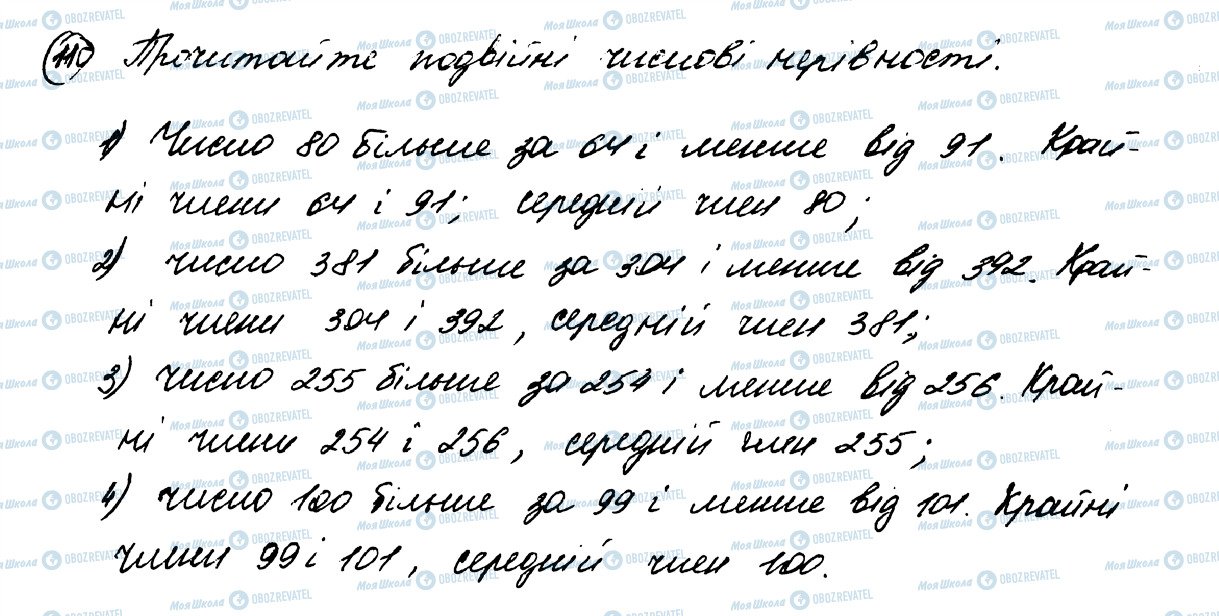 110 Прочитайте подвійні числові нерівності.
1) Число 80 більше за 64 і менше від 91. Край-
ні члени 64 і 91; середній член 80;
2) число 381 більше за 304 і менше від 392. Край-
ні члени 304 і 392, середній член 381;
3) число 255 більше за 254 і менше від 256. Край-
ні члени 254 і 256, середній член 255;
4) число 100 більше за 99 і менше від 101. Крайні
члени 99 і 101, середній член 100.